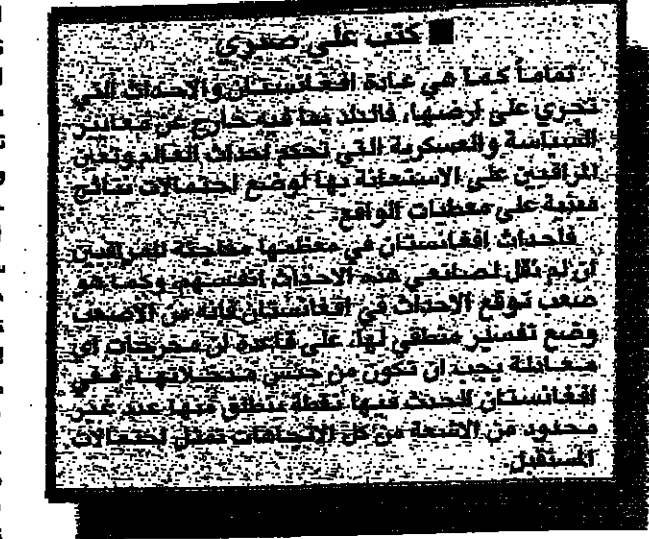 ■ كتب علي صبري
تماماً كما هي عادة افغانستان والاحداث التي
تجري على ارضها، فالبلد بما فيه خارج عن معايير
السياسة والعسكرية التي تحكم احداث العالم وتعين
المراقبين على الاستعانة بها لوضع احتمالات نتائج
مبنية على معطيات الواقع.
فاحداث افغانستان في معظمها مفاجئة للمراقبين
ان لم نقل لصانعي هذه الاحداث انفسهم، وكما هو
صعب توقع الاحداث في افغانستان فإنه من الاصعب
وضع تفسير منطقي لها، على قاعدة ان مخرجات أي
معادلة يجب ان تكون من جنس مدخلاتها، ففي
افغانستان الحدث فيها نقطة منطلق منها عدد غير
محدود من الاشعة من كل الاتجاهات تمثل احتمالات
المستقبل.